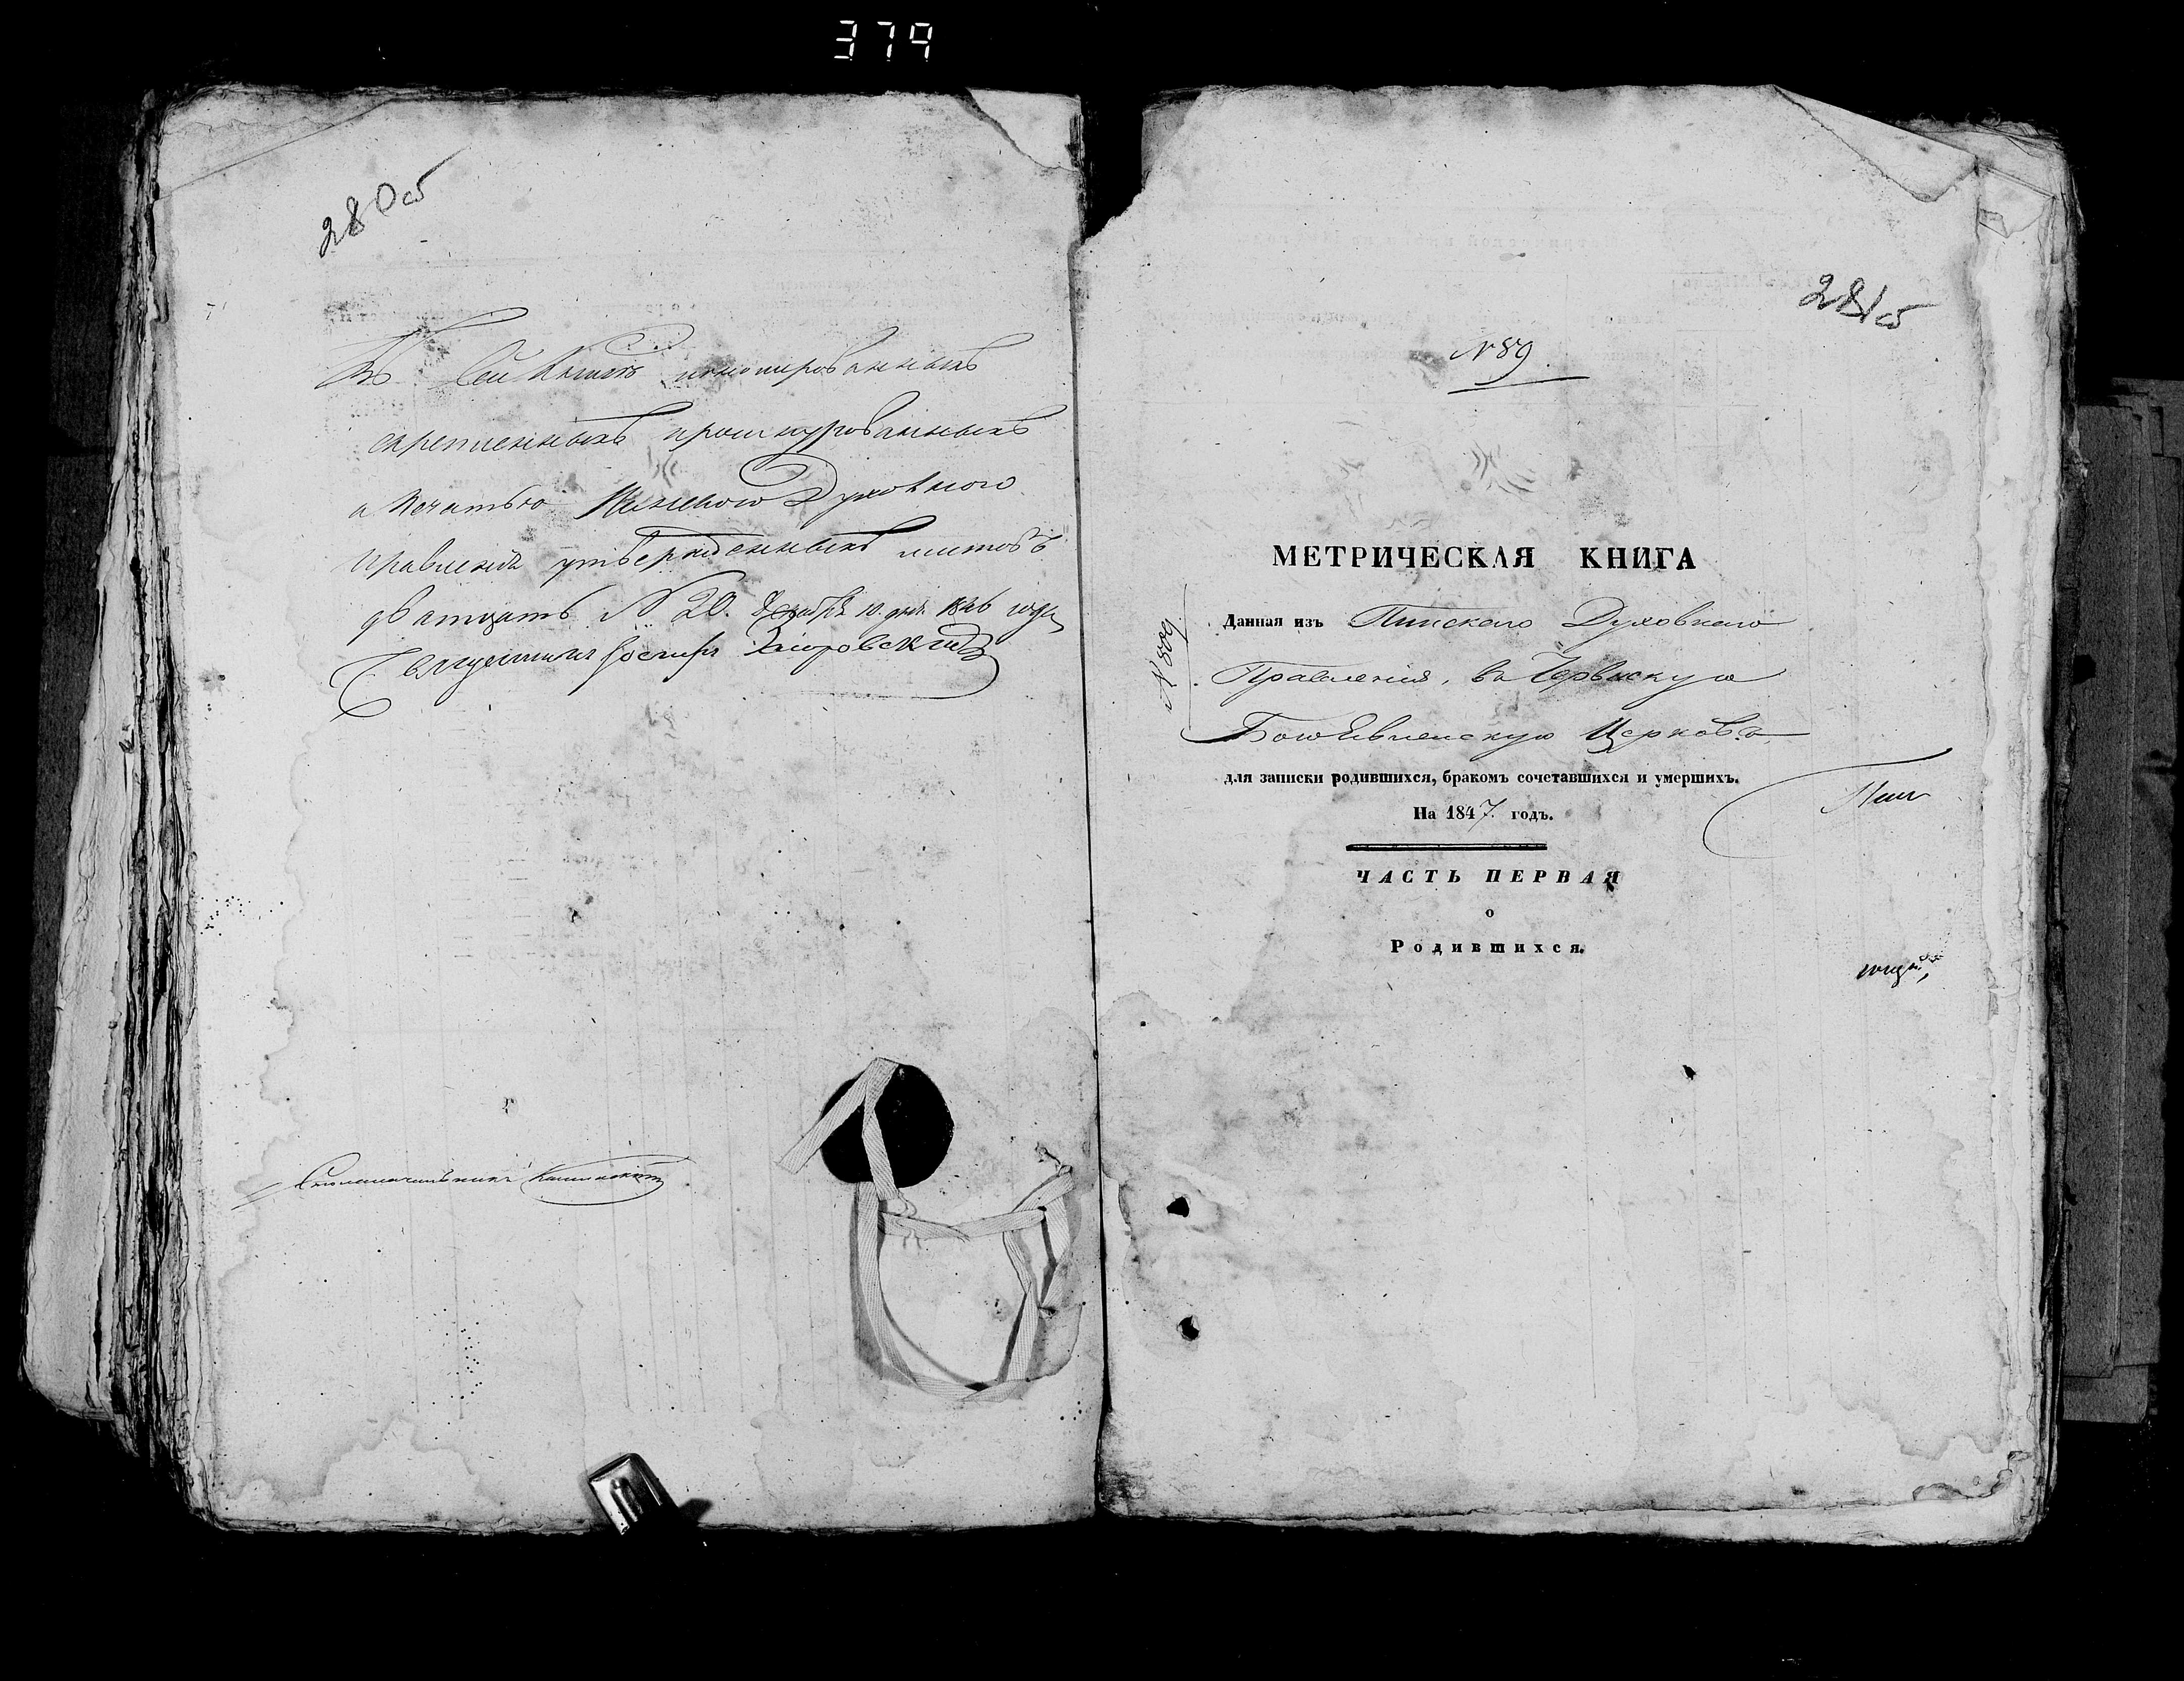 379
280об
Въ сей Книге пономерованныхъ
скрепленныхъ прошнурованныхъ
и печатью Пинского Духовного
Правления утвержденныхъ листовъ
дватцать № 20. Декабря 10 дня 1846 года
Священникъ Іосифъ
Столоначальникъ
281об
№ 89
№ 509
МЕТРИЧЕСКАЯ КНИГА
Данная изъ Пинскаго Духовнаго
Правления, въ
БогоЯвленскую Церковь
для записки родившихся, бракомъ сочетавшихся и умершихъ.
На 1847 годъ.
ЧАСТЬ ПЕРВАЯ
о
Родившихся.